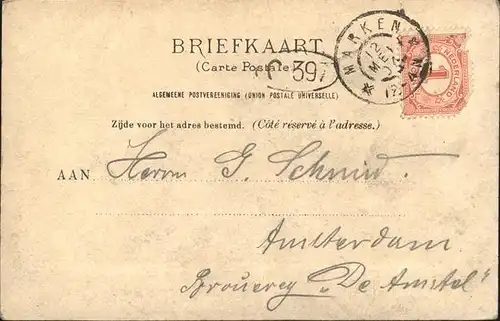 BRIEFKAART.
(Carte Postale.)
397
MARKEN
12 MEI
NEDERLAND
1
ALGEMEENE POSTVEREENIGING (UNION POSTALE UNIVERSELLE)
Zijde voor het adres bestemd. (Côté réservé à l'adresse.)
AAN Herrn G. Schmid.
Amsterdam
Brouerey „De Amstel"